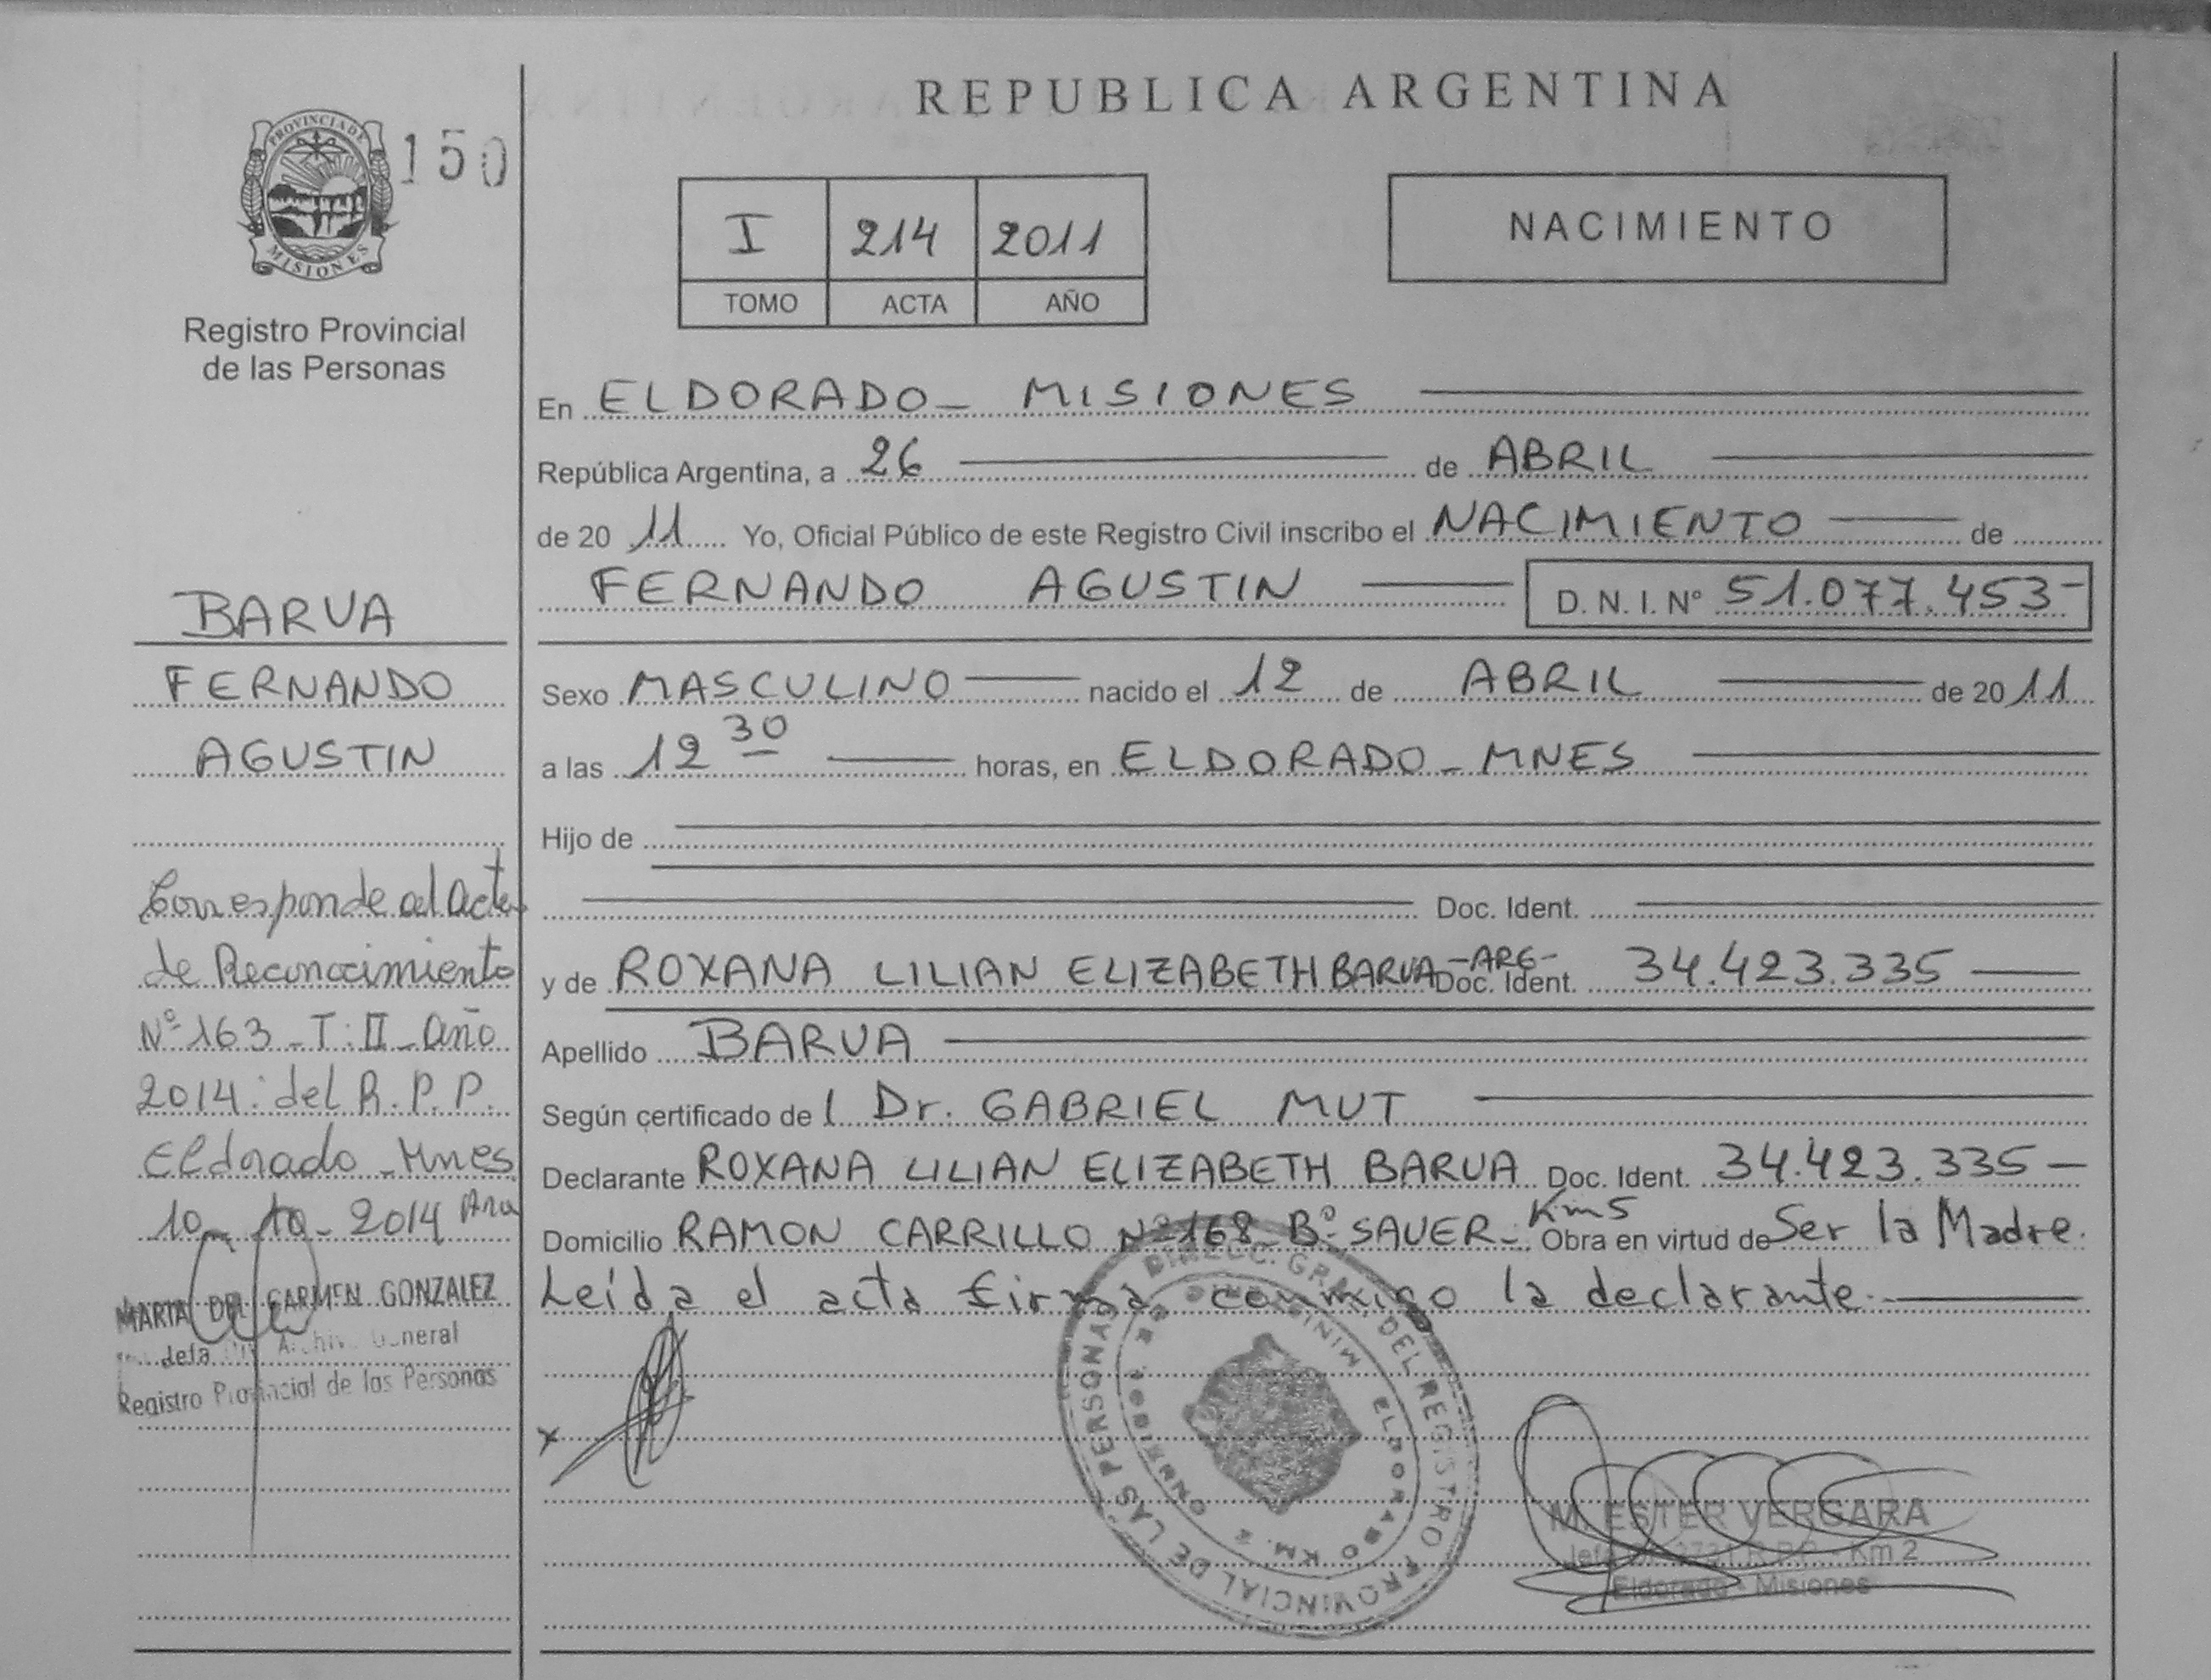 REPUBLICA ARGENTINA
PROVINCIA DE
MISIONES
150
Registro Provincial
de las Personas
I 214 2011
TOMO ACTA AÑO
NACIMIENTO
En ELDORADO - MISIONES
República Argentina, a 26 de ABRIL
de 2011 Yo, Oficial Público de este Registro Civil inscribo el NACIMIENTO de
FERNANDO AGUSTIN D. N. I. Nº 51.077.453-
Sexo MASCULINO nacido el 12 de ABRIL de 2011
a las 12 30 horas, en ELDORADO - MNES
Hijo de
Doc. Ident.
y de ROXANA LILIAN ELIZABETH BARUA -ARG- Doc. Ident. 34.423.335
Apellido BARUA
Según certificado de l Dr. GABRIEL MUT
Declarante ROXANA LILIAN ELIZABETH BARUA Doc. Ident. 34.423.335-
Domicilio RAMON CARRILLO Nº 168 Bº SAUER - Km5 Obra en virtud de Ser la Madre.
Leída el acta firma conmigo la declarante.
BARUA
FERNANDO
AGUSTIN
Corresponde al Acta
de Reconocimiento
Nº 163 - T: II - Año
2014: del R. P. P.
Eldorado - Mnes
10 - 10 - 2014
MARIA DEL CARMEN GONZALEZ
Jefa Archivo General
Registro Provincial de las Personas
x
DIRECC. GRAL. DEL REGISTRO PROVINCIAL DE LAS PERSONAS
MINISTERIO DE GOBIERNO
ELDORADO KM. 2
M. ESTER VERGARA
R.P.P. - Km 2
Eldorado - Misiones